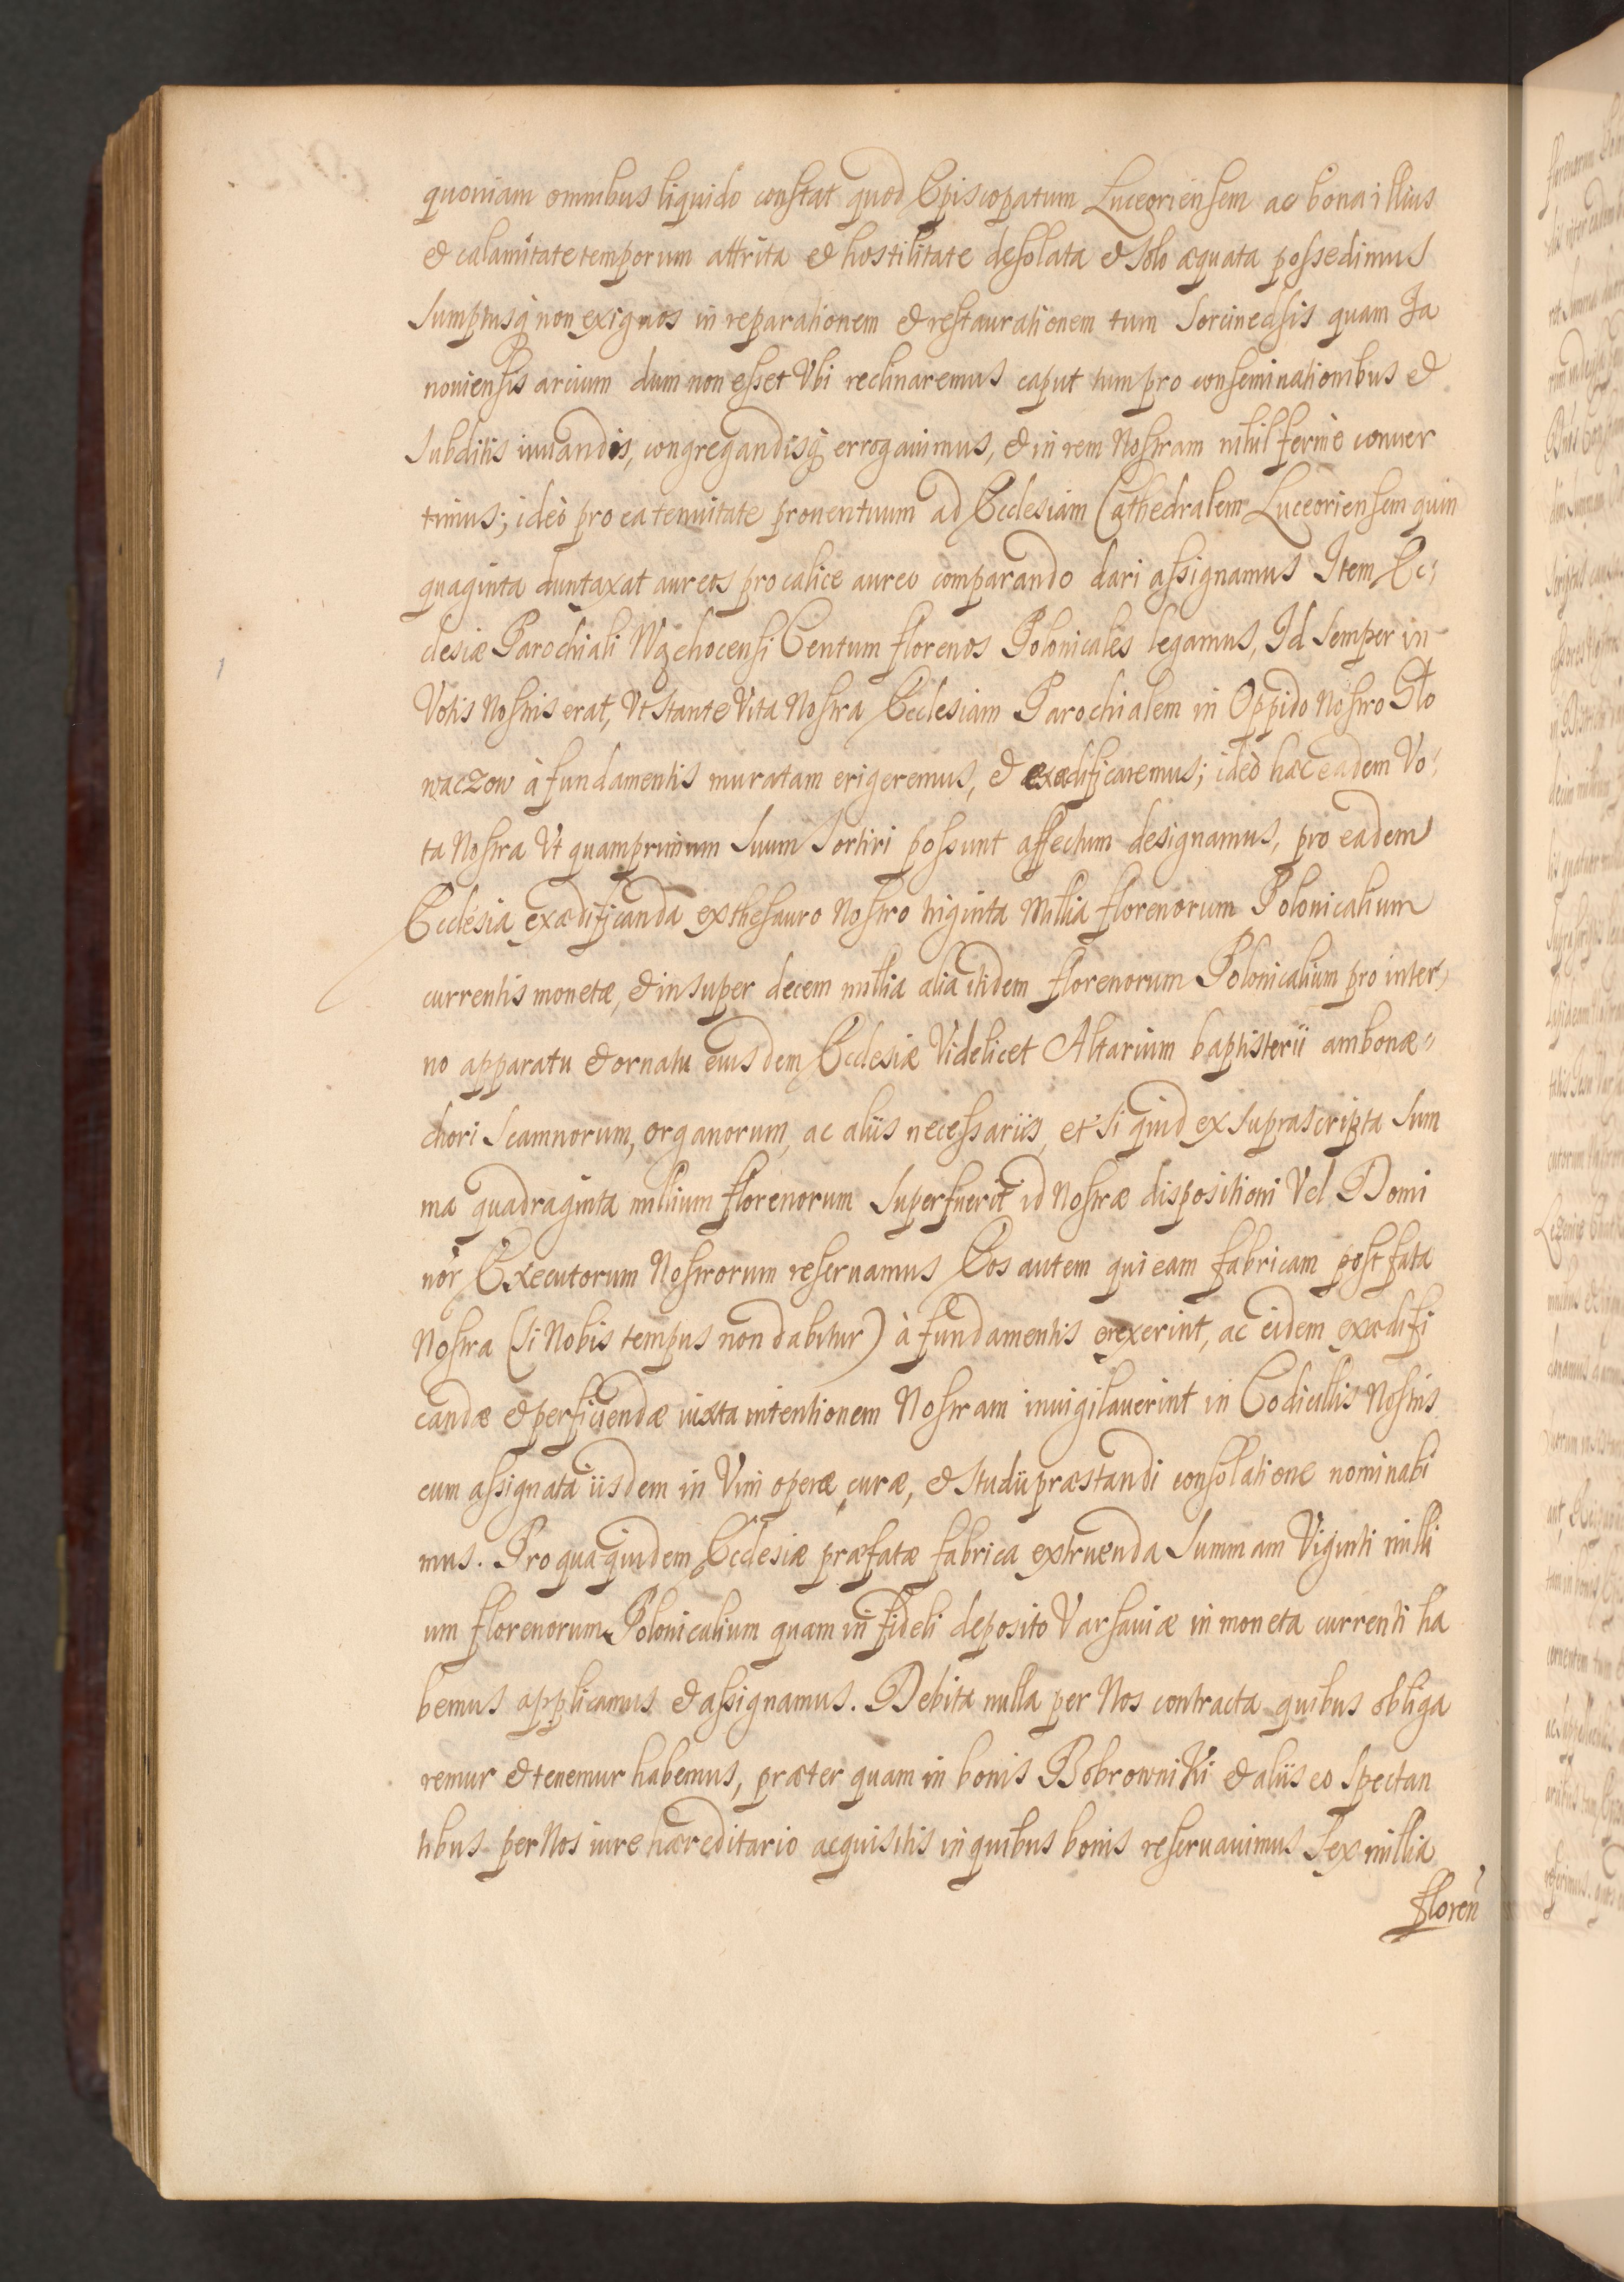 quoniam omnibus liquido constat quod Episcopatum Luceoriensem ac bona illius
& calamitate temporum attrita & hostilitate desolata & solo æquata possedimus
sumptusq́ non exiguos in reparationem & restaurationem tum Torcinedsis quam Ja
noviensis arcium dum non esset Vbi reclinaremus caput tum pro conseminationibus &
subditis iuuandis, congregandisq́ errogauimus, & in rem Nostram nihil ferme conuer
timus; ideò pro ea tenuitate prouentuum ad Ecclesiam Cathedralem Luceoriensem quin
quaginta duntaxat aureos pro calice aureo comparando dari assignamus Item Ec;
clesiæ Parochiali Wąchocensi Centum florenos Polonicales legamus, Id semper in
Votis Nostris erat, Vt stante Vita Nostra Ecclesiam Parochialem in Oppido Nostro Gło
waczow à fundamentis muratam erigeremus, & exædificaremus; ideò hæc eadem Vo;
ta Nostra Vt quamprimum suum sortiri possunt affectum designamus, pro eadem
Ecclesia exædificanda ex thesauro Nostro triginta Millia florenorum Polonicalium
currentis monetæ, & insuper decem millia alia itidem florenorum Polonicalium pro inter,
no apparatu & ornatu eiusdem Ecclesiæ Videlicet Altarium baptisterii ambonæ"
chori scamnorum, organorum, ac aliis necessariis, et si quid ex suprascripta sum
ma quadraginta millium florenorum superfuerit id Nostræ dispositioni Vel Domi
nor Executorum Nostrorum reseruamus Eos autem qui eam fabricam post fata
Nostra (si Nobis tempus non dabitur) à fundamentis erexerint, ac eidem exædifi
candæ & perficiendæ iuxta intentionem Nostram inuigilauerint in Codicillis Nostris
cum assignata iisdem in Vim operæ, curæ, & studii præstandi consolatione nominabi
mus. Pro qua quidem Ecclesiæ præfatæ fabrica extruenda summam Viginti milli
um florenorum Polonicalium quam in fideli deposito Varsauiæ in moneta currenti ha
bemus applicamus & assignamus. Debita nulla per Nos contracta quibus obliga
remur & tenemur habemus, præter quam in bonis Bobrowniki & aliis eo spectan
tibus per Nos iure hæreditario acquisitis in quibus bonis reseruauimus sex millia
floren̄